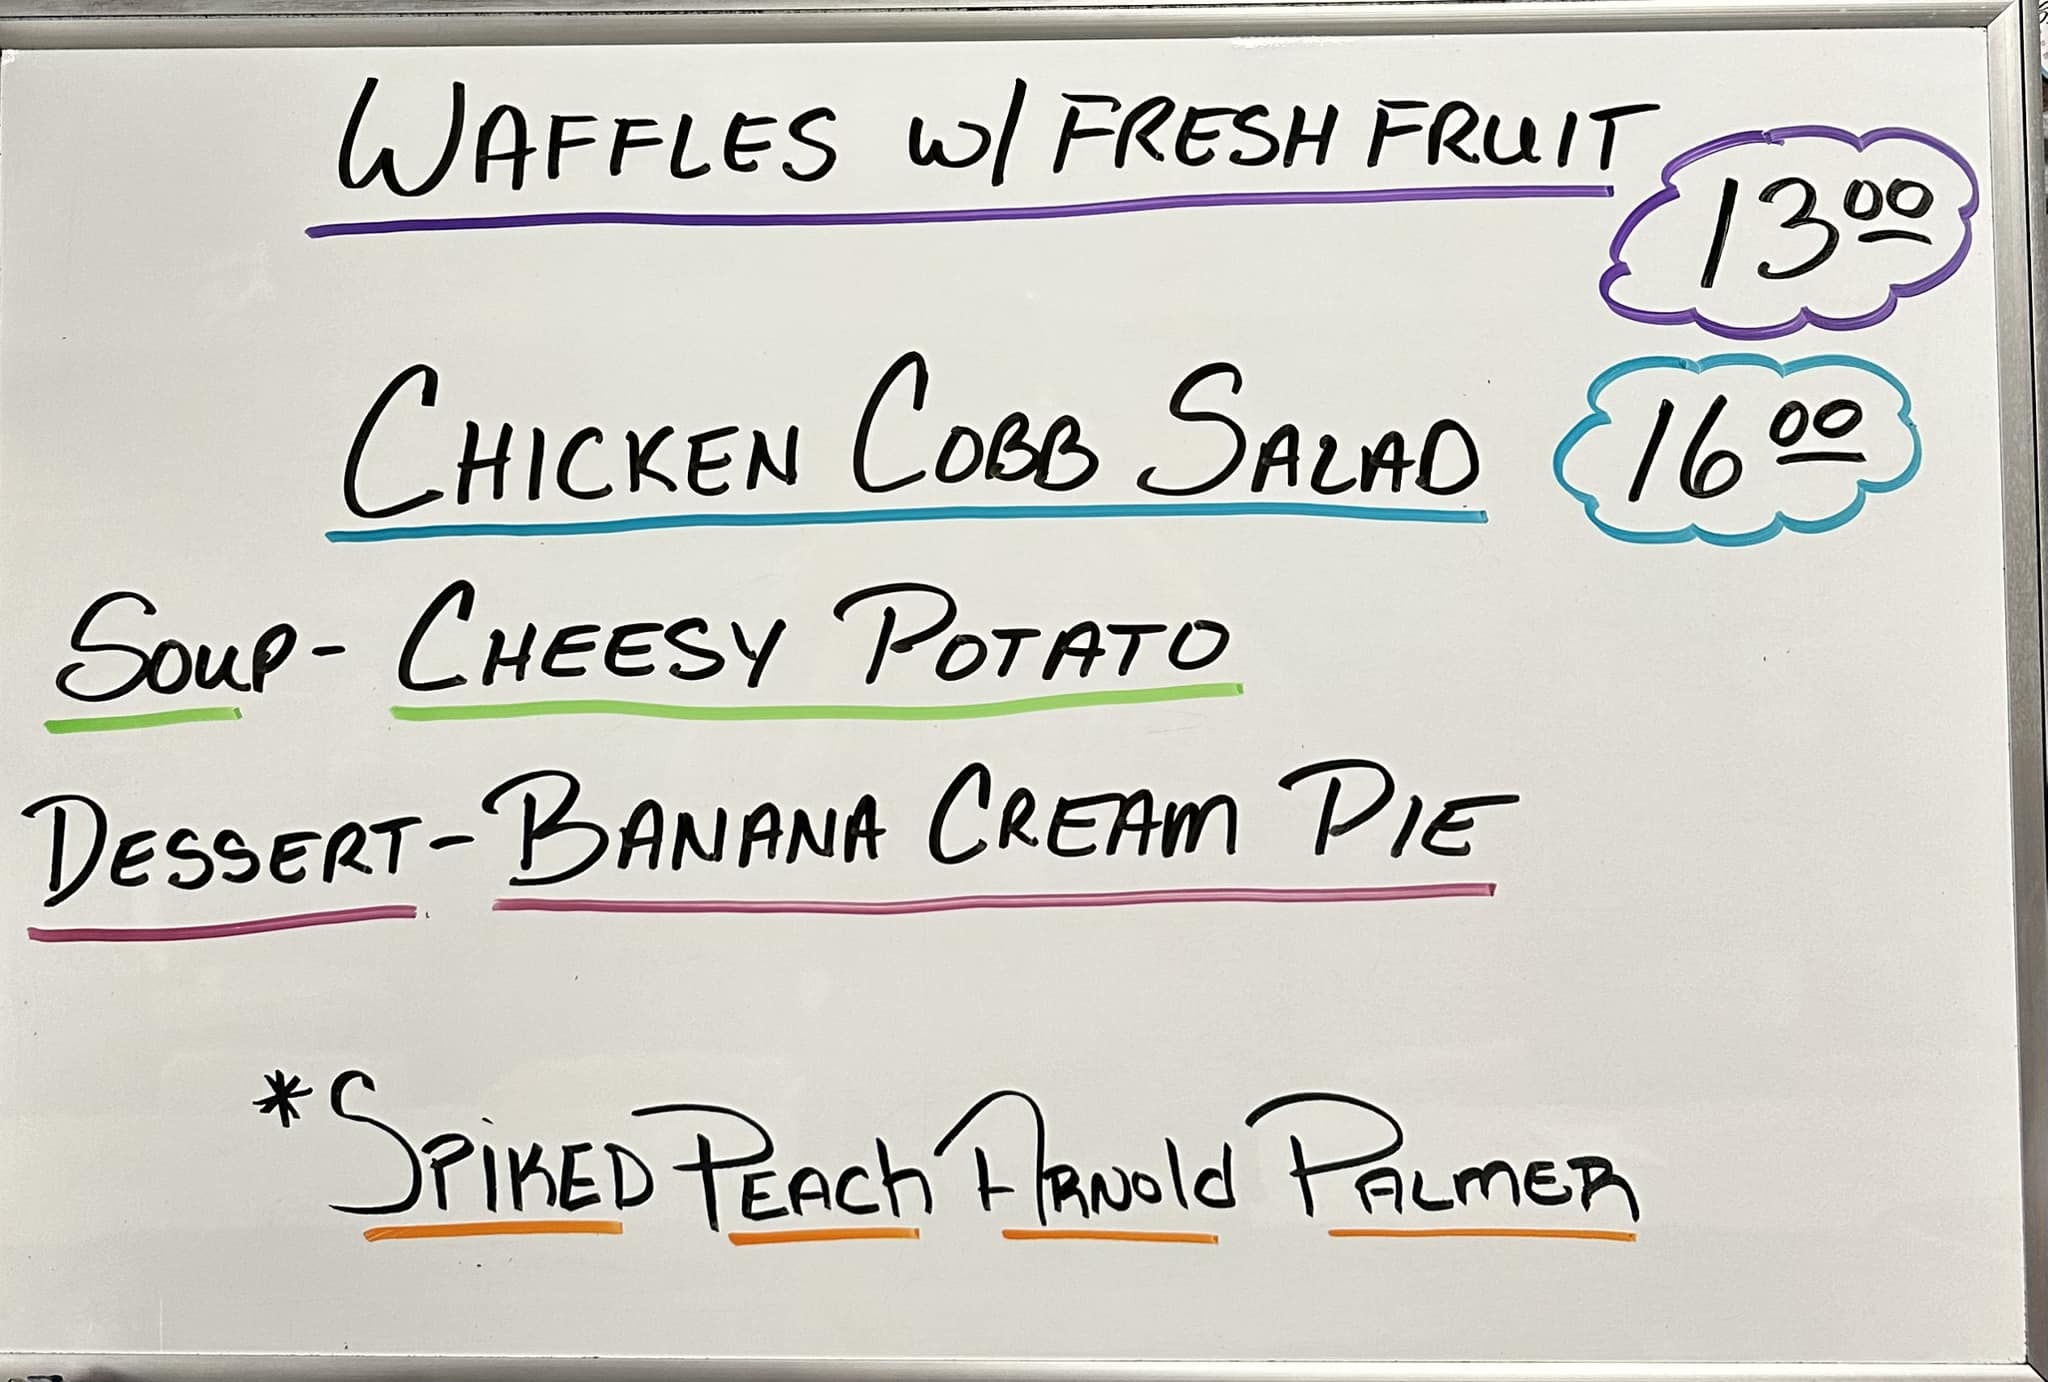 WAFFLES w/ FRESH FRUIT 13⁰⁰
CHICKEN COBB SALAD 16⁰⁰
SOUP- CHEESY POTATO
DESSERT- BANANA CREAM PIE
*SPIKED PEACH ARNOLD PALMER